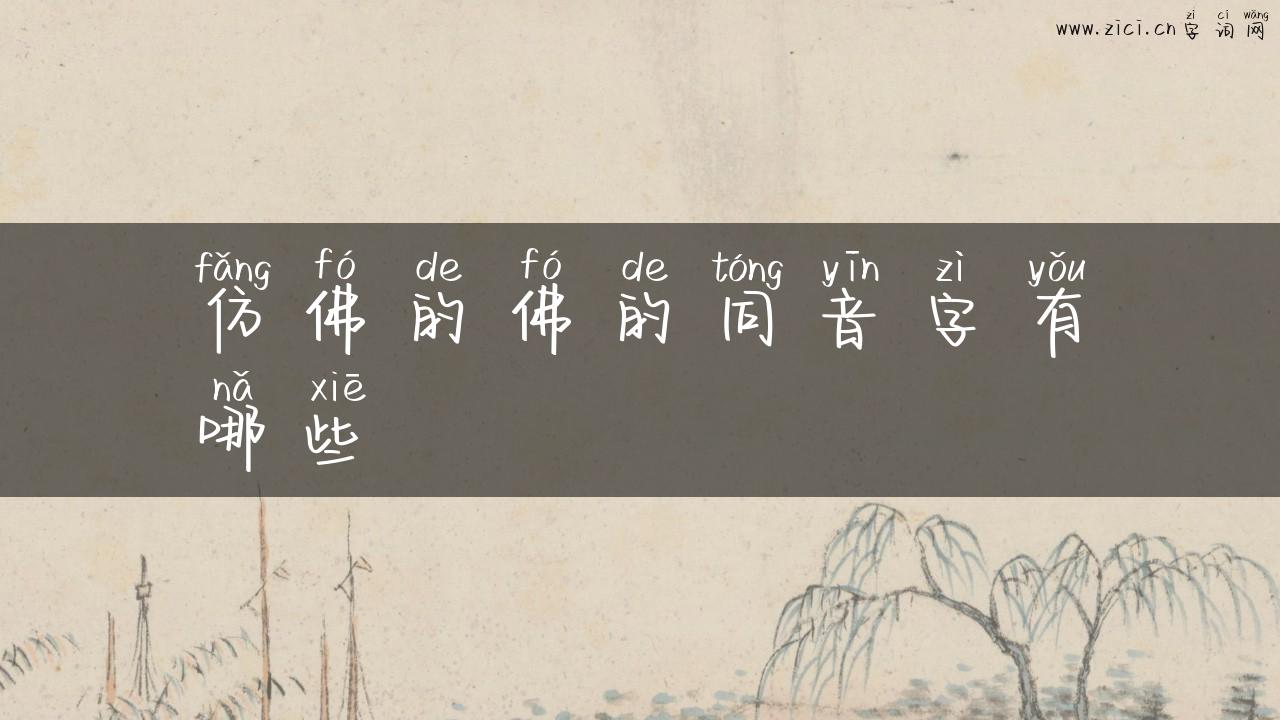 zì cí wǎng
www.zici.cn 字 词 网
fǎng fó de fó de tóng yīn zì yǒu
仿 佛 的 佛 的 同 音 字 有
nǎ xiē
哪 些